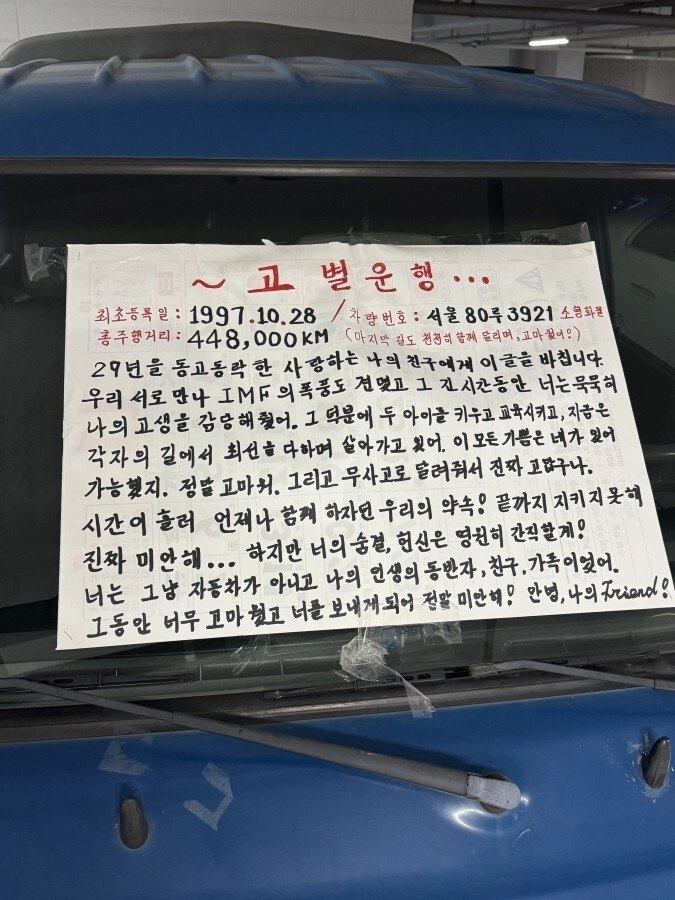 ~ 고 별 운 행 ...
최초등록일 : 1997.10.28 / 차량번호 : 서울80루3921 소형화물
총주행거리 : 448,000KM (마지막 길도 천천히 함께 달리며, 고마웠어!)
29년을 동고동락한 사랑하는 나의 친구에게 이 글을 바친다.
우리 서로 만나 IMF의 폭풍도 견뎠고 그 긴 시간동안 너는 묵묵히
나의 고생을 감당해 줬어. 그 덕분에 두 아이를 키우고 교육시키고, 지금은
각자의 길에서 최선을 다하며 살아가고 있어. 이 모든 기쁨은 네가 있어
가능했지. 정말 고마워. 그리고 무사고로 달려줘서 진짜 고맙구나.
시간이 흘러 언제나 함께 하자던 우리의 약속! 끝까지 지키지 못해
진짜 미안해... 하지만 너의 숨결, 헌신은 영원히 간직할게!
너는 그냥 자동차가 아니고 나의 인생의 동반자, 친구, 가족이었어.
그동안 너무 고마웠고 너를 보내게 되어 정말 미안해! 안녕, 나의 Friend!